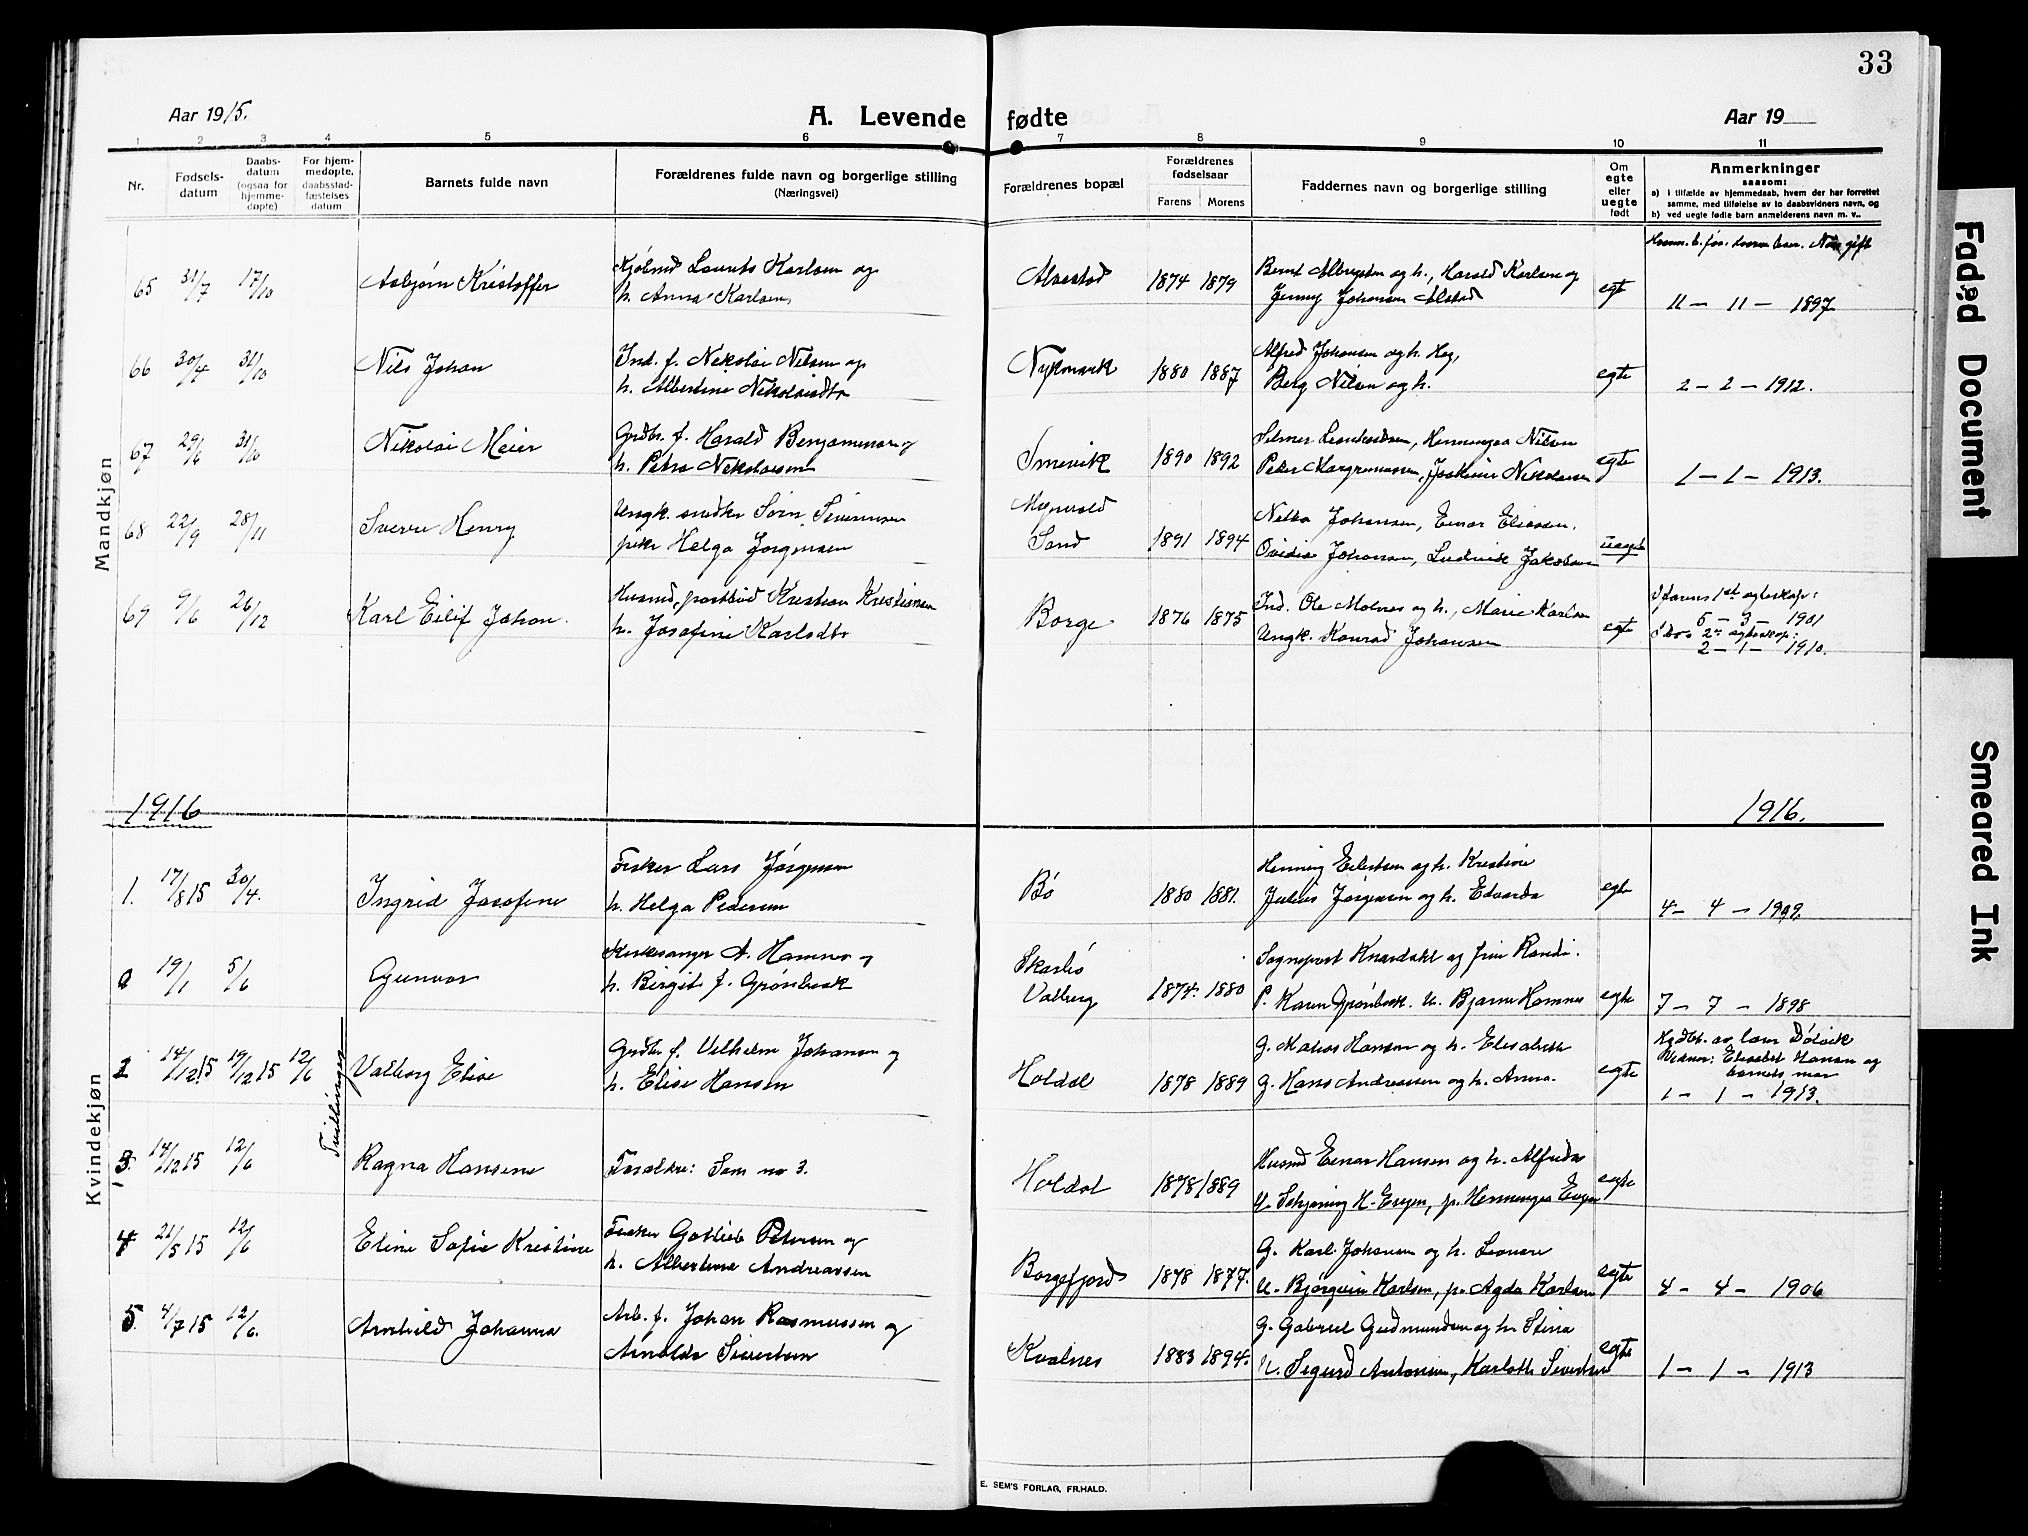 33
Aar 1915.
A. Levende fødte
Aar 19
1 2 3 4 5 6 7 8 9 10 11
Nr.
Fødsels-
datum
Daabs-
datum
(ogsaa for
hjemme-
døpte)
For hjem-
medøpte,
daabsstad-
fæstelses
datum
Barnets fulde navn
Forældrenes fulde navn og borgerlige stilling
(Næringsvei)
Forældrenes bopæl
Forældrenes
fødselsaar
Farens Morens
Faddernes navn og borgerlige stilling
Om
egte
eller
uegte
født
Anmerkninger
saasom:
a) i tilfælde av hjemmedaab, hvem der har forrettet
samme, med tilføielse av to daabsvidners navn, og
b) ved uegte fødte barn anmelderens navn m. v..
Mandkjøn
65 31/7 17/10 Asbjørn Kristoffer
Laurits Karlsen og
h. Anna Karlsen
Alvestad 1874 1879
Bernt Albrigtsen og h., Harald Karlsen og
Jenny Johansen Alstad
egte
11 – 11 – 1897
66 30/4 31/10 Nils Johan
Ind. f. Nikolai Nilsen og
h. Albertine Nikolaisdtr
Nykmark 1880 1887
Alfred Johansen og h. Hag,
Berg Nilsen og h.
egte
2 – 2 – 1912.
67 29/6 31/10 Nikolai Meier
Grdbr. f. Harald Benjaminsen og
h. Petra Nikolaisen
Smevik 1890 1892
Selmer Leonhardsen, Henningea Nilsen
Peter Margremassen, Joakime Nikolaisen
egte
1 – 1 – 1913.
68 22/9 28/11 Sverre Henry
Ungk. snedker Sørn Sivertsen
pike Helga Jørgensen
Sand 1891 1894
Nelka Johansen, Einar Eliassen.
Ovidia Johansen, Ludvik Jakobsen
uegte
69 9/6 26/12 Karl Eilif Johan.
Husmd, postbud Kristian Kristiansen
h. Josefine Karlsdtr
Borge 1876 1875
Ind. Ole Molnes og h., Marie Karlsen
Ungk. Konrad Johansen
egte
I farens 1st egteskap:
5 – 3 – 1901
2t egteskap:
2 – 1 – 1910.
1916
1916.
Kvindekjøn
1. 17/8 15 30/4. Ingrid Josefine
Fisker Lars Jørgensen
h. Helga Pedersen
Bø 1880 1881.
Henning Eilertsen og h. Kristine
Julius Jørgensen og h. Edvarda
egte
4 – 4 – 1909.
19/1 5/6 Gunvor
Kirkesanger A. Hamnes og
h. Birgit f. Grønbæk
Skarbø
Valberg 1874. 1880
Sogneprest Knardahl og frue Randi.
P. Karen Grønbæk. U. Bjarne Hamnes
egte
7 – 7 – 1898
2 14/12 15 19/12 15 12/6 Valborg Elise
Grdbr f. Vilhelm Johansen og
h. Elise Hansen
Holdal 1878 1889
G. Matias Hansen og h. Elisabeth
G. Hans Andreassen og h. Anna.
egte
Hjdbt. av Lars Dølvik
Vidner: Elisabet Hansen og
barnets mor
1 – 1 – 1913.
Tvillinger
3. 14/12 15 12/6 Ragna Hansine
Forældre: Som no 3.
Holdal 1878 1889
Husmd Einar Hansen og h. Alfrida
U. Schjøning H. Evjen, p. Henningea Evjen
egte
4 21/5 15 12/6 Eline Sofie Kristine
Fisker Gotlieb Petersen og
h. Albertine Andreassen
Borgefjord 1878 1877.
G. Karl Johansen og h. Leonore
U. Bjørgvin Karlsen, p. Agda Karlsen
egte
4 – 4 – 1906
5. 4/7 15 12/6. Arnhild Johanna
Arb. f. Johan Rasmussen og
Arnolda Sivertsen
Kvalnes 1883 1894.
G. Gabriel Gudmundsen og h. Stina
U. Sigurd Antonsen, Karlotte Sivertsen
egte
1 – 1 – 1913
E. SEM'S FORLAG, FR.HALD.
Faded Document
Smeared Ink